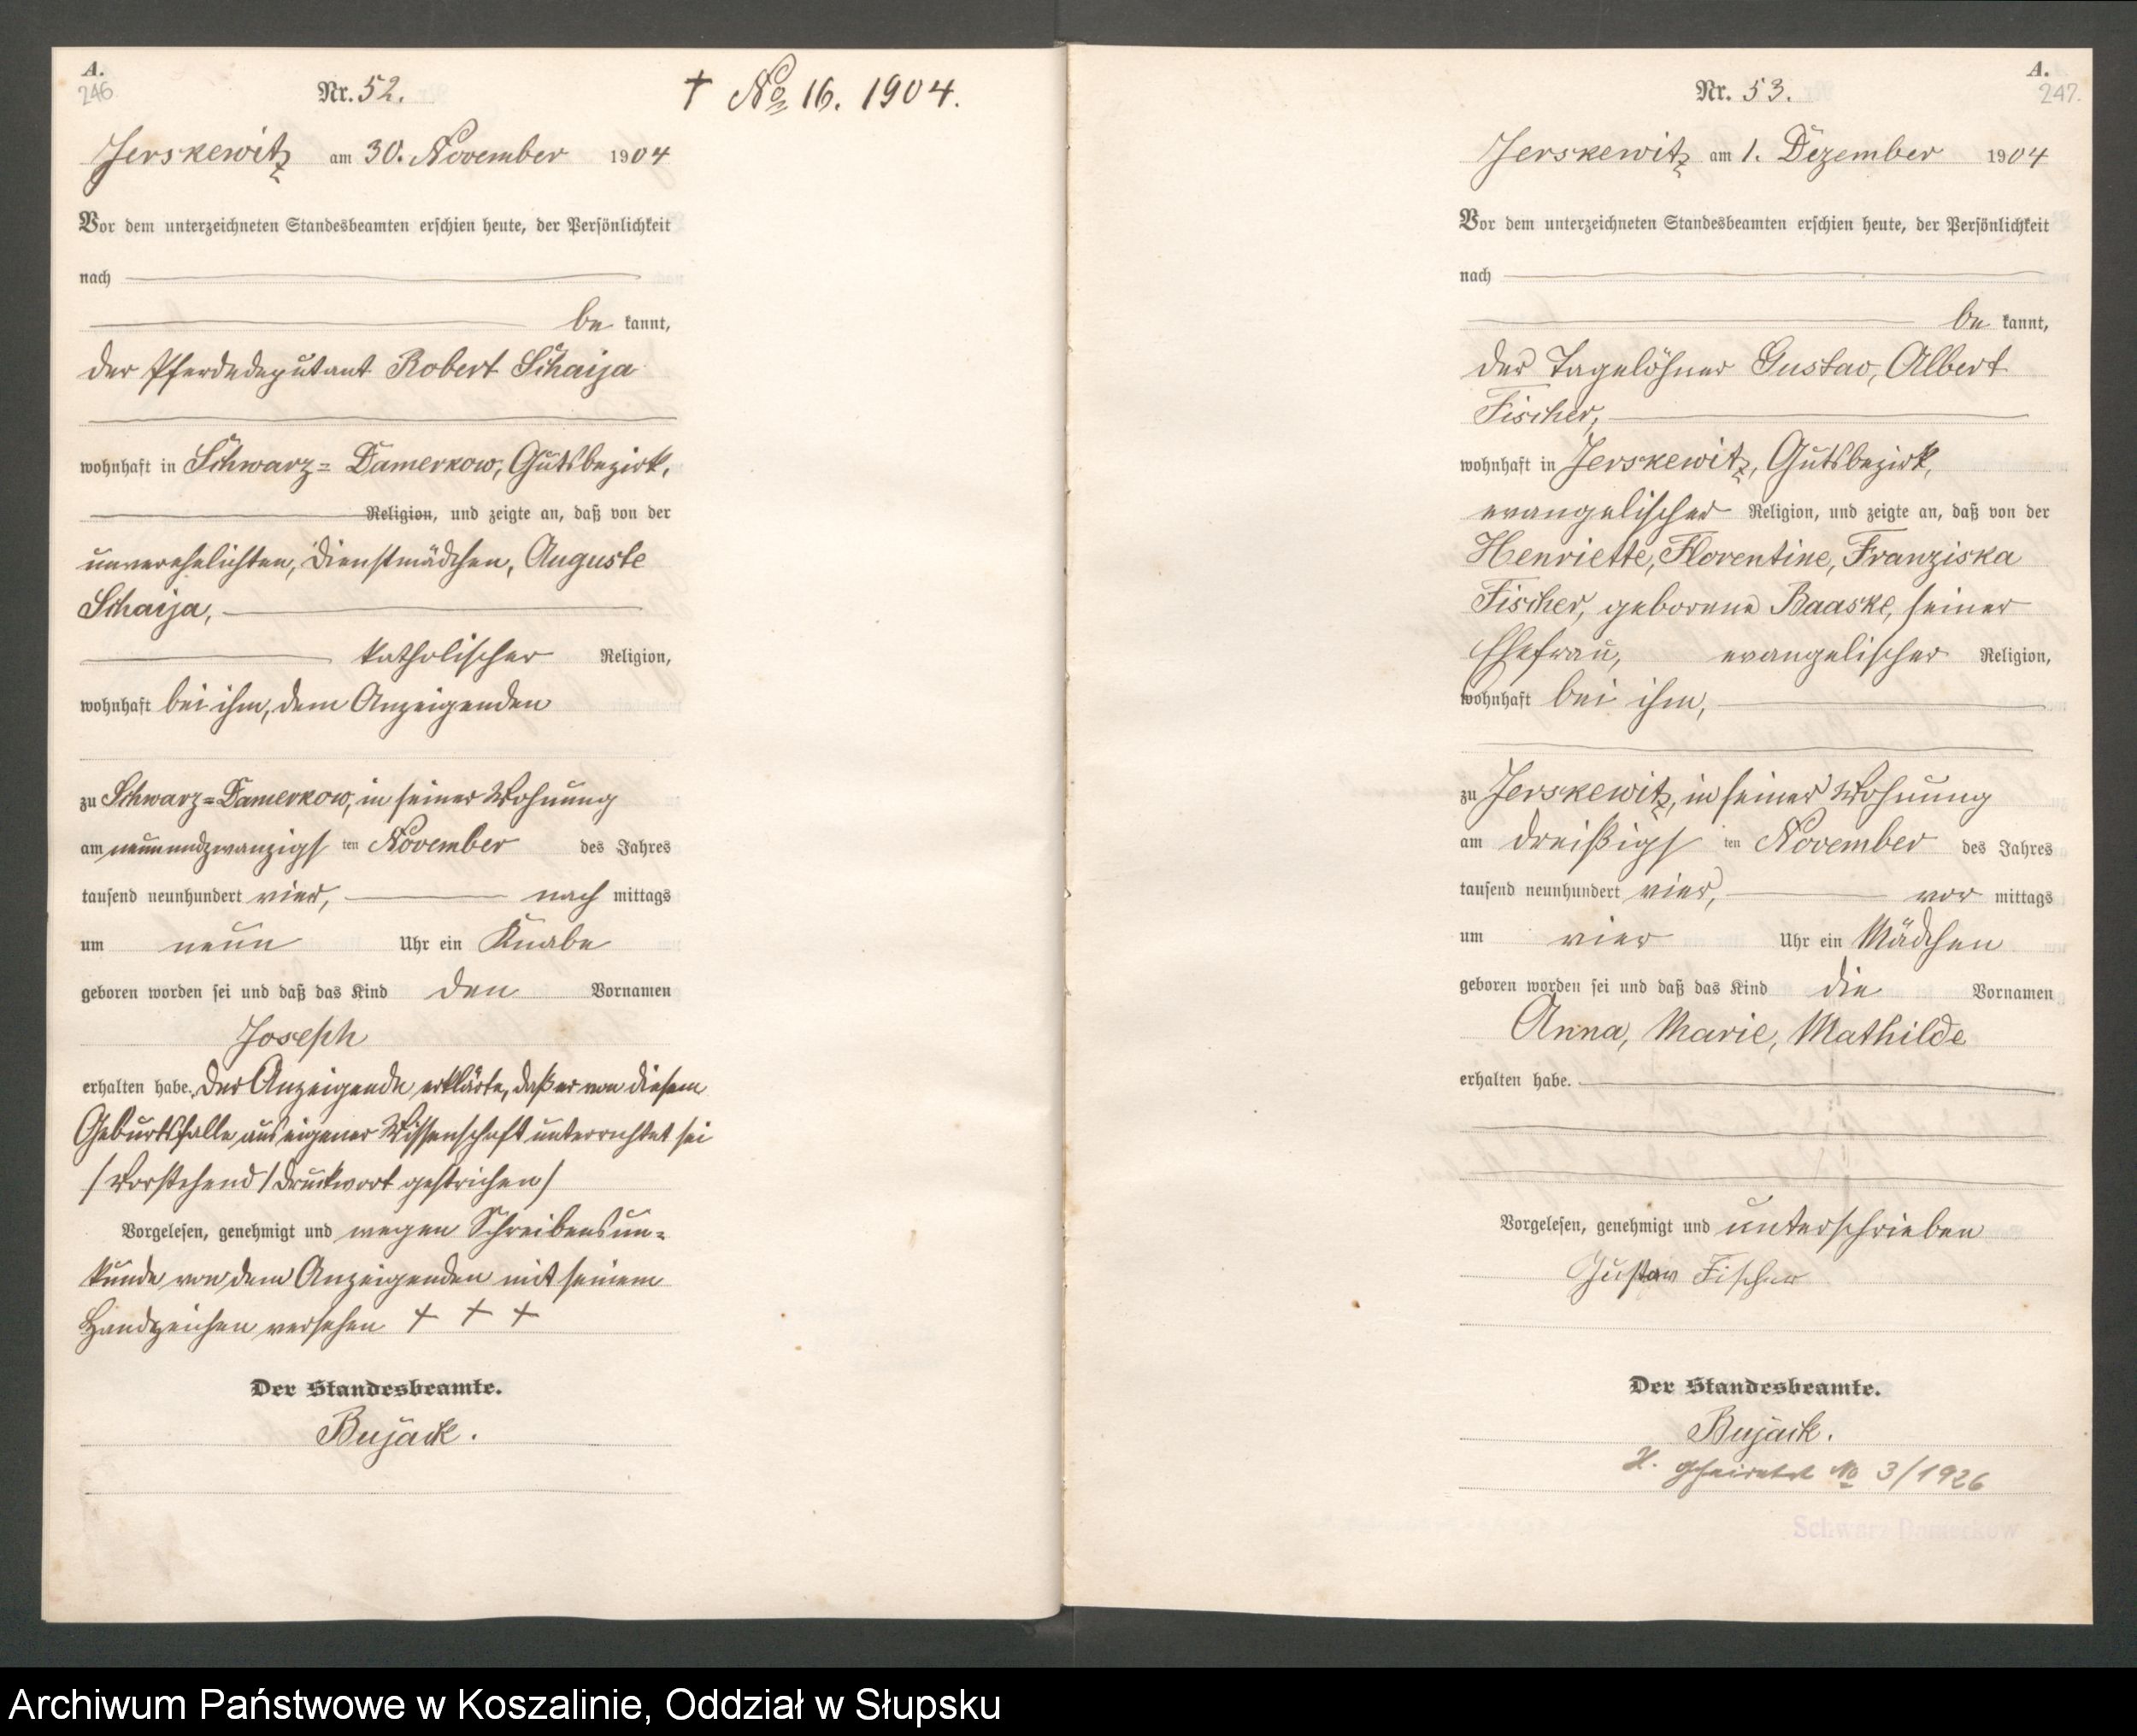 A.
246
Nr. 52.
† No 16. 1904.
Jerskewitz am 30. November 1904
Vor dem unterzeichneten Standesbeamten erschien heute, der Persönlichkeit
nach
be kannt,
der Pferdedeputant Robert Schaija
wohnhaft in Schwarz=Damerkow, Gutsbezirk,
Religion, und zeigte an, daß von der
unverehelichten, Dienstmädchen, Auguste
Schaija,
katholischer Religion,
wohnhaft bei ihm, dem Anzeigenden
zu Schwarz=Damerkow, in seiner Wohnung
am neunundzwanzigs ten November des Jahres
tausend neunhundert vier, nach mittags
um neun Uhr ein Knabe
geboren worden sei und daß das Kind den Vornamen
Joseph
erhalten habe. Der Anzeigende erklärte, daß er von diesem
Geburtsfalle aus eigener Wissenschaft unterrichtet sei
/Vorstehend 1 Druckwort gestrichen/
Vorgelesen, genehmigt und wegen Schreibensun=
kunde von dem Anzeigenden mit seinem
Handzeichen versehen † † †
Der Standesbeamte.
Bujack.
A.
247.
Nr. 53.
Jerskewitz am 1. Dezember 1904
Vor dem unterzeichneten Standesbeamten erschien heute, der Persönlichkeit
nach
be kannt,
der Tagelöhner Gustav, Albert
Fischer,
wohnhaft in Jerskewitz, Gutsbezirk,
evangelischer Religion, und zeigte an, daß von der
Henriette, Florentine, Franziska
Fischer, geborene Baaske, seiner
Ehefrau, evangelischer Religion,
wohnhaft bei ihm,
zu Jerskewitz, in seiner Wohnung
am dreißigs ten November des Jahres
tausend neunhundert vier, vor mittags
um vier Uhr ein Mädchen
geboren worden sei und daß das Kind die Vornamen
Anna, Marie, Mathilde
erhalten habe.
Vorgelesen, genehmigt und unterschrieben
Gustav Fischer
Der Standesbeamte.
Bujack.
geheiratet No 3/1926
Schwarz Damerkow
Archiwum Państwowe w Koszalinie, Oddział w Słupsku